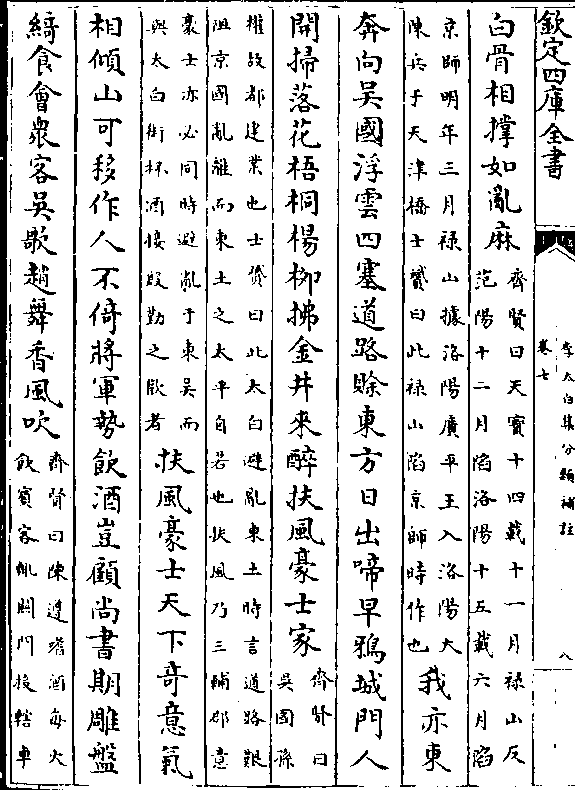 欽定四庫全書
李太白集分類補註
卷七
八
白骨相撐如亂麻齊賢曰天寶十四載十一月祿山反范陽十二月陷洛陽十五載六月陷
京師明年三月祿山據洛陽廣平王入洛陽大陳兵于天津橋士贇曰此祿山陷京師時作也我亦東
奔向吳國浮雲四塞道路賒東方日出啼早鴉城門人
開掃落花梧桐楊柳拂金井來醉扶風豪士家齊賢曰吳國孫
權故都建業也士贇曰此太白避亂東土時言道路艱阻京國亂離而東土之太平自若也扶風乃三輔郡意
豪士亦必同時避亂于東吳而與太白銜杯酒接殷勤之歡者扶風豪士天下奇意氣
相傾山可移作人不倚將軍勢飲酒豈顧尚書期雕盤
綺食會衆客吳歌趙舞香風吹齊賢曰陳遵嗜酒每大飲賓客輒關門投轄車